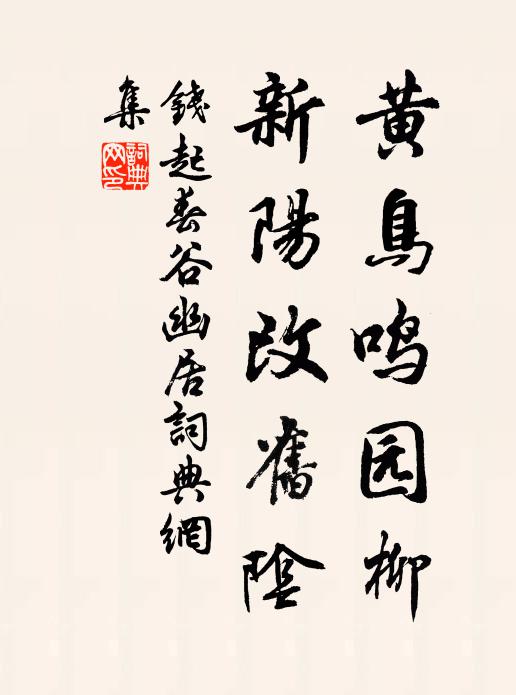 黄鳥鸣园柳
新陽改舊陰
錢起春谷幽居詞典網
集
詞典
网印